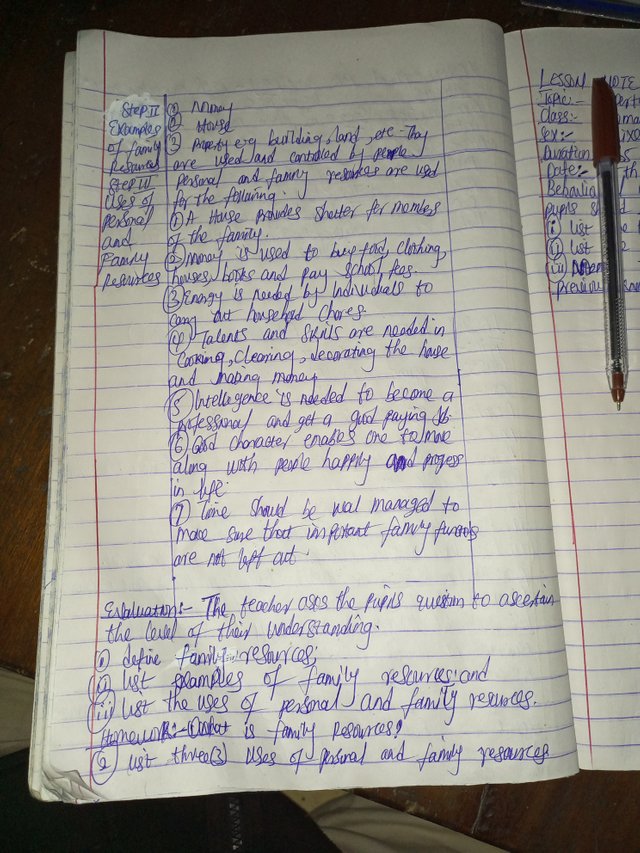 Step II
Examples
of family
Resources
Step III
Uses of
personal
and
Family
Resources
① Money
② House
③ Property e.g building, land, etc. They
are used and controlled by people.
Personal and family resources are used
for the following.
① A House provides shelter for members
of the family.
② Money is used to buy food, clothing,
houses, books and pay school fees.
③ Energy is needed by individuals to
carry out household chores.
④ Talents and skills are needed in
cooking, cleaning, decorating the house
and making money
⑤ Intelligence is needed to become a
professional and get a good paying job.
⑥ Good character enables one to move
along with people happily and progress
in life.
⑦ Time should be well managed to
make sure that important family functions
are not left out.
Evaluation:- The teacher asks the pupils question to ascertain
the level of their understanding.
① define family resources;
② list examples of family resources; and
iii) list the uses of personal and family resources.
Homework:- ① What is family Resources?
② List three (3) uses of personal and family resources
LESSON NOTE
Topic:-
Class:-
Sex:-
Duration
Date:-
Behavioural
pupils should
i) list the
ii) list the
iii)
Previous